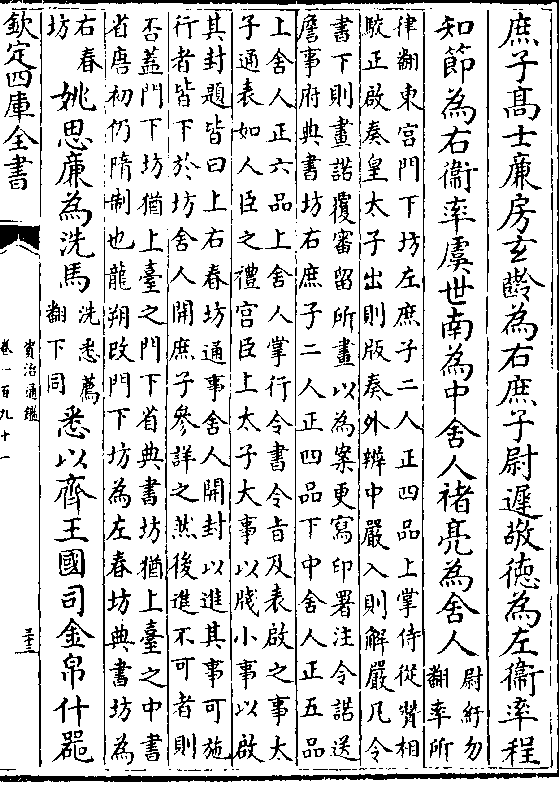 庶子髙士廉房玄齡為右庶子尉遲敬徳為左衞率程
知節為右衞率虞世南為中舍人褚亮為舍人
尉紆勿
翻率所
律翻東宮門下坊左庶子二人正四品上掌侍從贊相
駮正啟奏皇太子出則版奏外辦中嚴入則解嚴凡令
書下則畫諾覆審留所畫以為案更寫印署注令諾送
詹事府典書坊右庶子二人正四品下中舍人正五品
上舍人正六品上舍人掌行令書令㫖及表啟之事太
子通表如人臣之禮宮臣上太子大事以牋小事以啟
其封題皆曰上右春坊通事舍人開封以進其事可施
行者皆下於坊舍人開庶子參詳之然後進不可者則
否蓋門下坊猶上臺之門下省典書坊猶上臺之中書
省唐初仍隋制也龍朔改門下坊為左春坊典書坊為
右春
坊
姚思廉為洗馬
洗悉薦
翻下同
悉以齊王國司金帛什噐
欽定四庫全書
資治通鑑
卷一百九十一
三十三